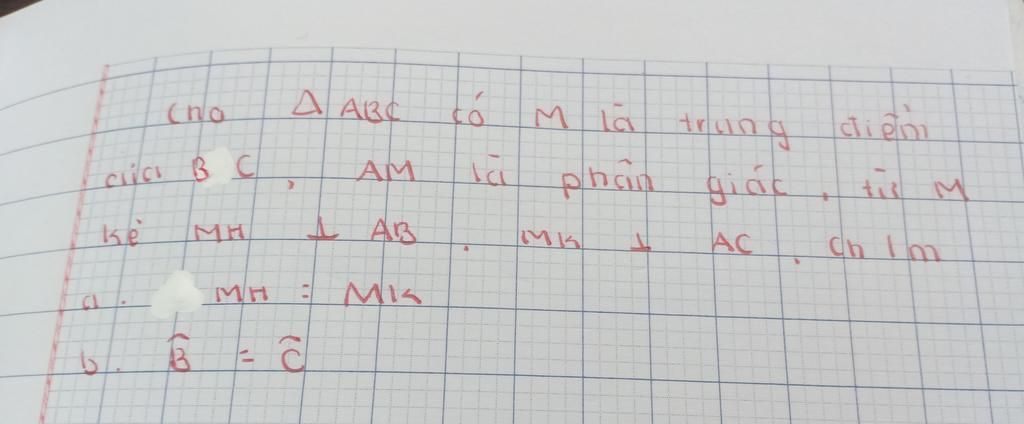 cho Δ ABC có M là trung điểm
của B C, AM là phân giác, từ M
kẻ MH ⊥ AB. MK ⊥ AC. Ch/m
a. MH = MK
b. B̂ = Ĉ